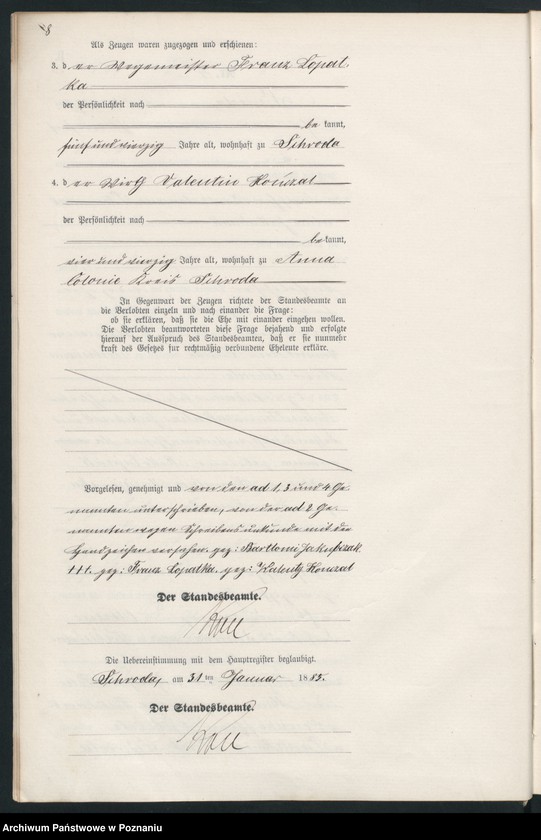 8
Als Zeugen waren zugezogen und erschienen:
3. der Wegemeister Franz Lopat-
ka
der Persönlichkeit nach
bekannt,
fünf und vierzig Jahre alt, wohnhaft zu Schroda
4. der Wirth Valentin
der Persönlichkeit nach
bekannt,
vier und vierzig Jahre alt, wohnhaft zu Anna
Colonie Kreis Schroda
In Gegenwart der Zeugen richtete der Standesbeamte an
die Verlobten einzeln und nach einander die Frage:
ob sie erklären, daß sie die Ehe mit einander eingehen wollen.
Die Verlobten beantworteten diese Frage bejahend und erfolgte
hierauf der Ausspruch des Standesbeamten, daß er sie nunmehr
kraft des Gesetzes für rechtmäßig verbundene Eheleute erkläre.
Vorgelesen, genehmigt und von den ad 1, 3 und 4 Ge-
nannten unterschrieben, von der ad 2 Ge-
nannten wegen Schreibensunkunde mit den
Handzeichen versehen. gez: Bartlomi Jakubczak
+++. gez: Franz Lopatka. gez:
Der Standesbeamte.
Die Uebereinstimmung mit dem Hauptregister beglaubigt.
Schroda, am 31ten Januar 1885.
Der Standesbeamte.
Archiwum Państwowe w Poznaniu